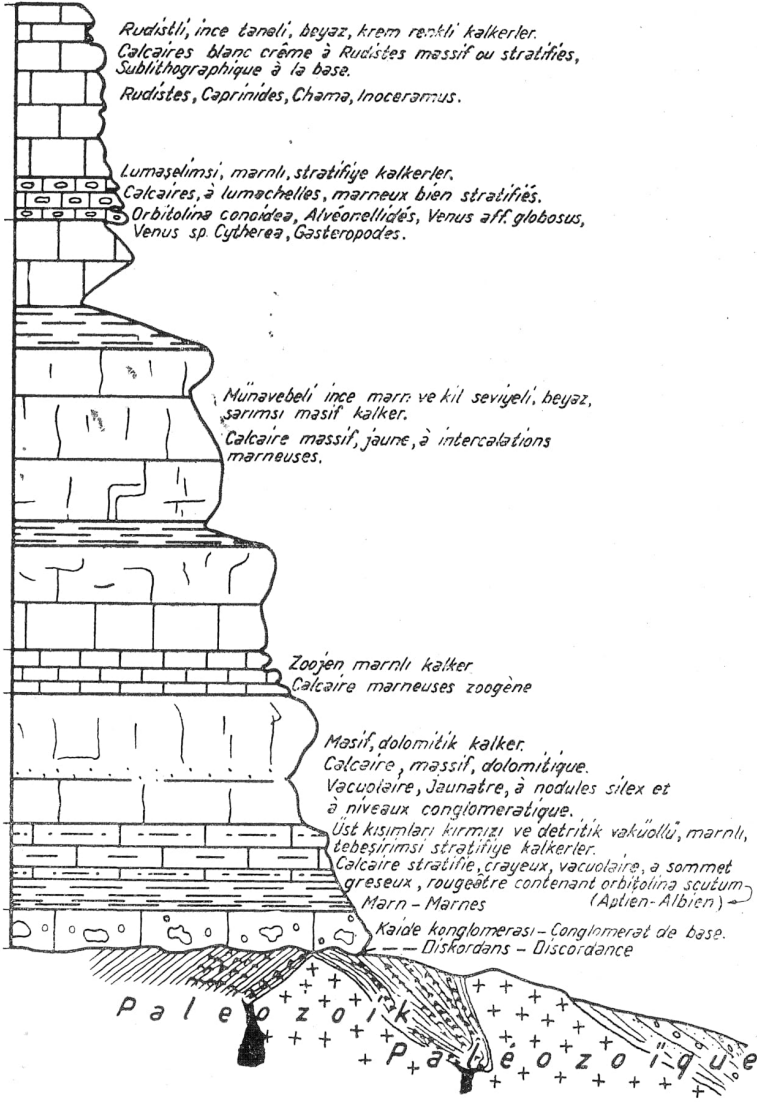 Rudistli, ince taneli, beyaz, krem renkli kalkerler.
Calcaires blanc crême à Rudistes massif ou stratifiés,
Sublithographique à la base.
Rudistes, Caprinides, Chama, Inoceramus.
Lumaşelimsi, marnlı, stratifiye kalkerler.
Calcaires, à lumachelles, marneux bien stratifiés.
Orbitolina conoidea, Alvéonellidés, Venus aff. globosus,
Venus sp. Cytherea, Gasteropodes.
Münavebeli ince marn ve kil seviyeli, beyaz,
sarımsı masif kalker.
Calcaire massif, jaune, à intercalations
marneuses.
Zoojen marnlı kalker
Calcaire marneuses zoogène
Masif, dolomitik kalker.
Calcaire, massif, dolomitique.
Vacuolaire, Jaunatre, à nodules silex et
à niveaux conglomeratique.
Üst kısımları kırmızı ve detritik vaküollü, marnlı,
tebeşirimsi stratifiye kalkerler.
Calcaire stratifie, crayeux, vacuolaire, a sommet
greseux, rougeâtre contenant orbitolina scutum
Marn - Marnes (Aptien-Albien)
Kaide konglomerası - Conglomerat de base.
Diskordans - Discordance
Paleozoik
Paléozoïque